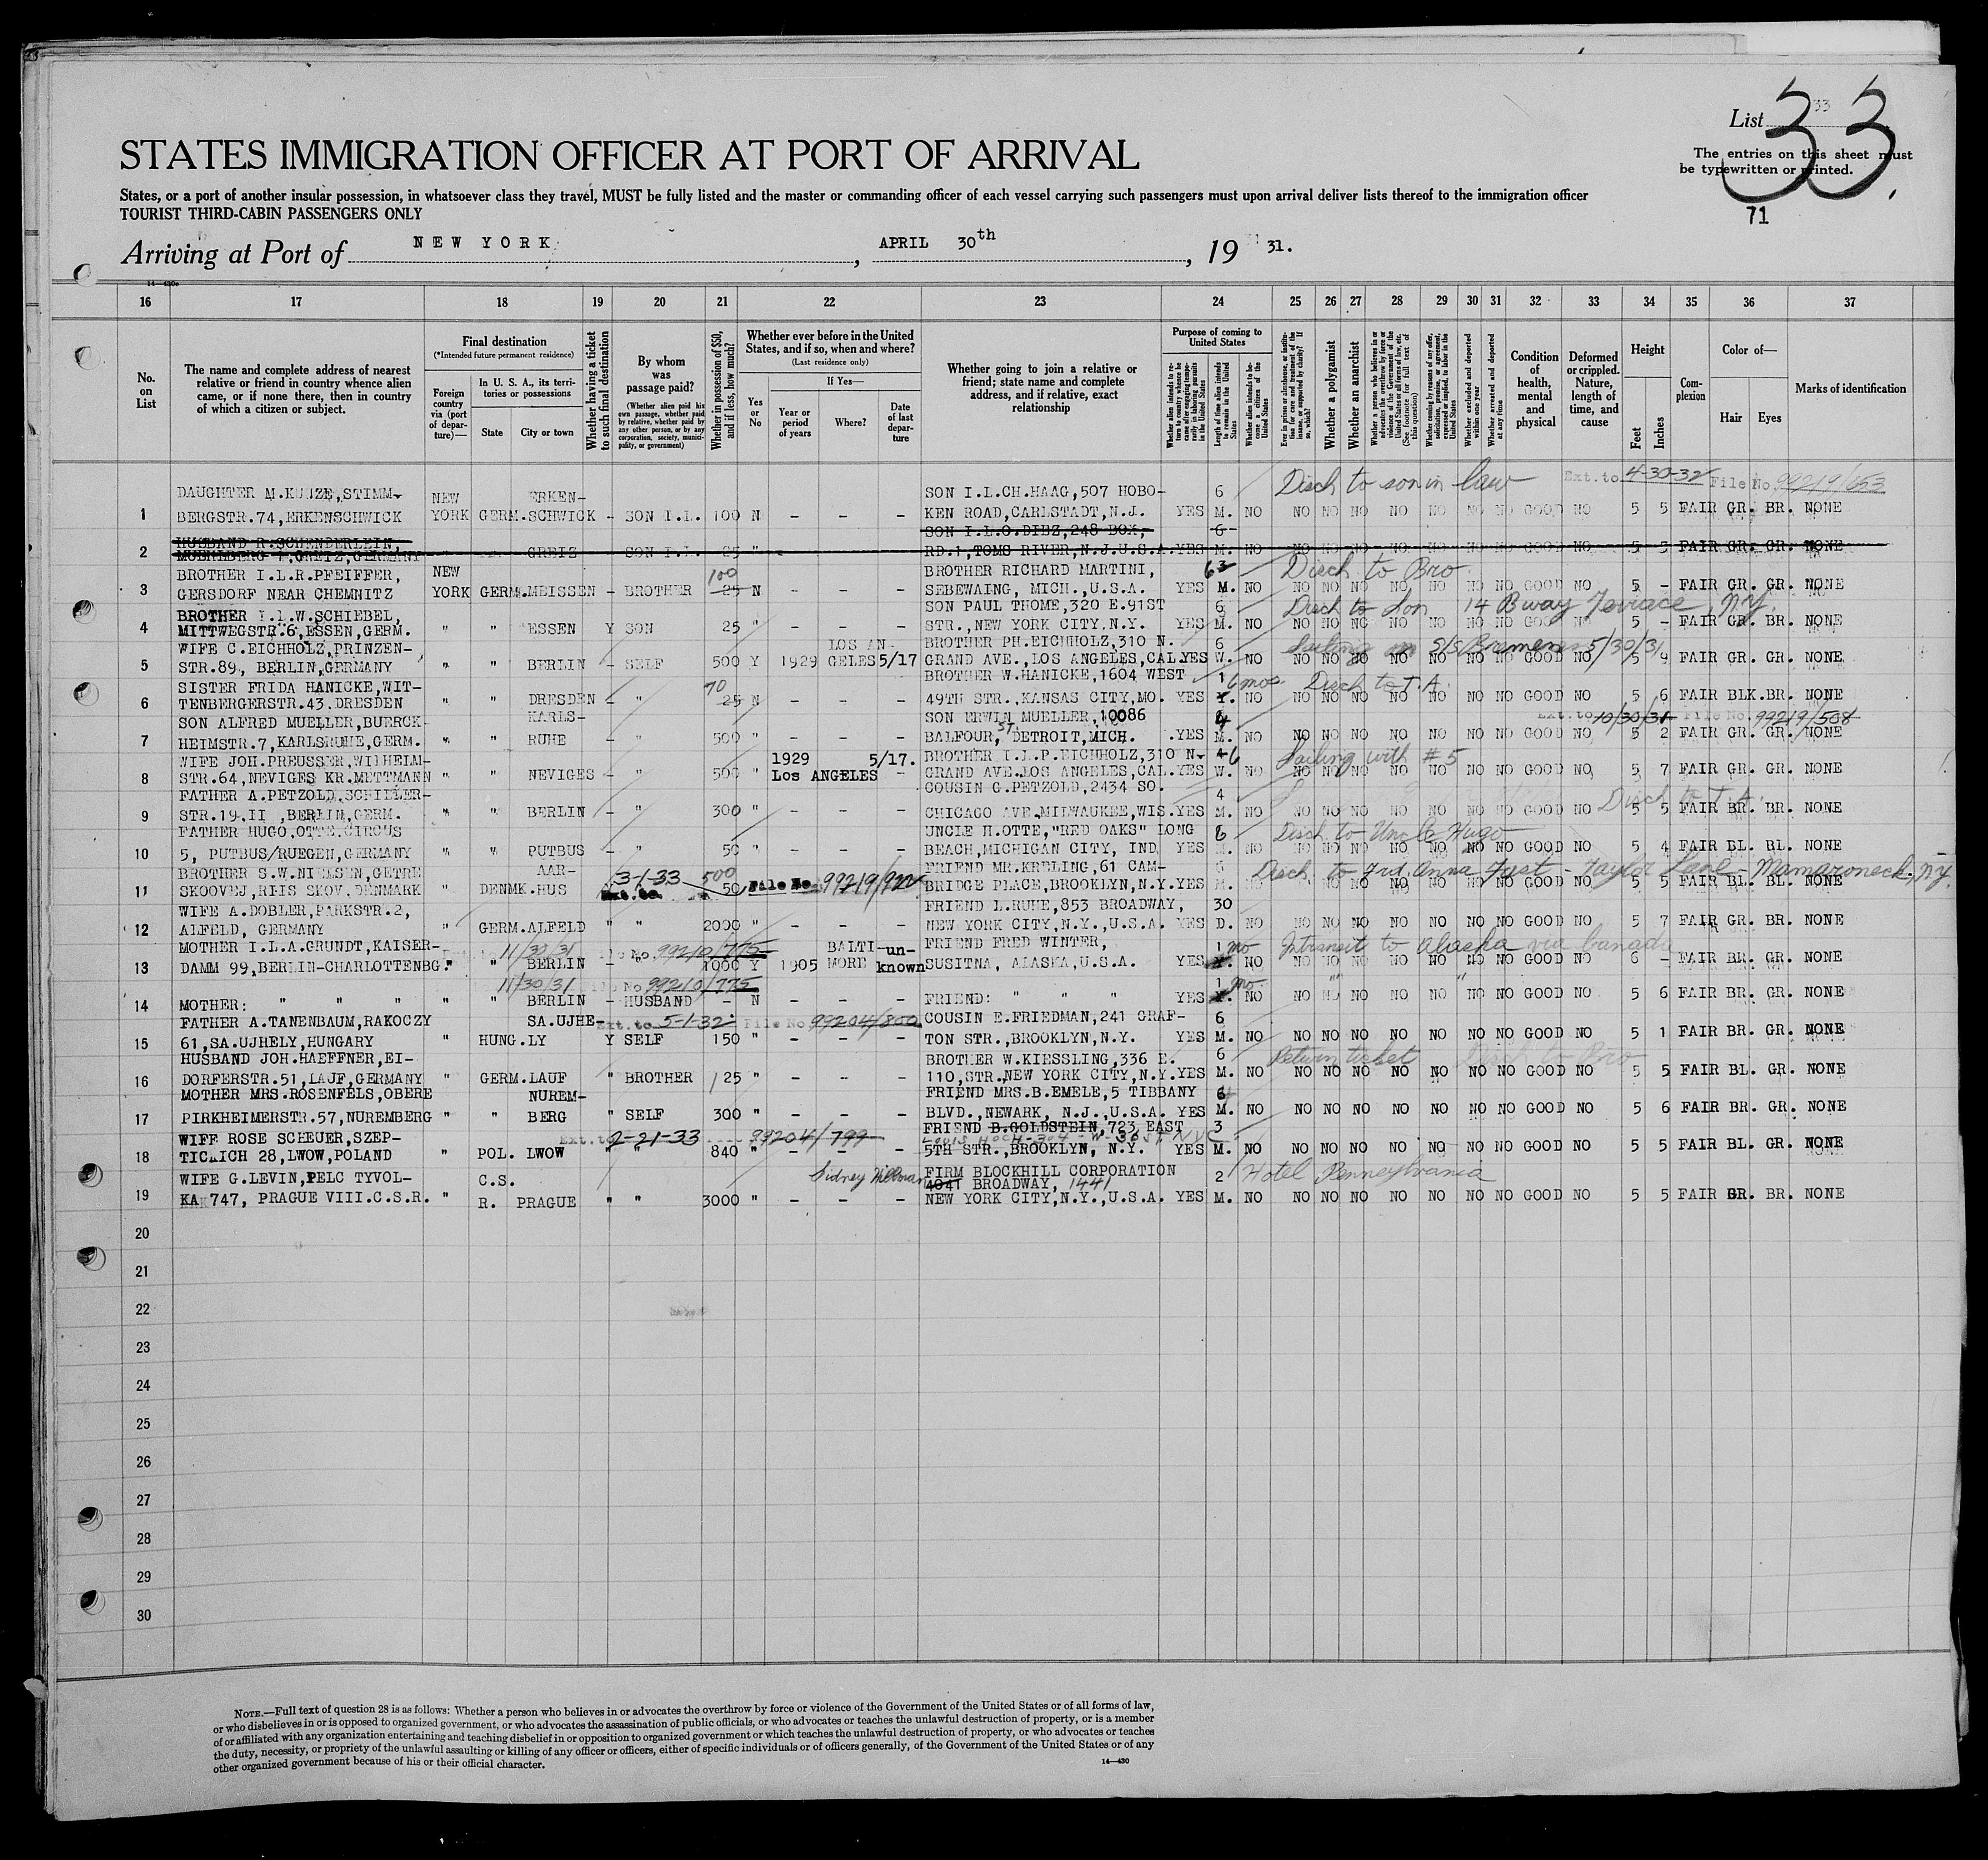 List 33
33.
The entries on this sheet must
be typewritten or printed.
71
STATES IMMIGRATION OFFICER AT PORT OF ARRIVAL
States, or a port of another insular possession, in whatsoever class they travel, MUST be fully listed and the master or commanding officer of each vessel carrying such passengers must upon arrival deliver lists thereof to the immigration officer
TOURIST THIRD-CABIN PASSENGERS ONLY
Arriving at Port of NEW YORK, APRIL 30th, 19 31.
16 17 18 19 20 21 22 23 24 25 26 27 28 29 30 31 32 33 34 35 36 37
No. on List
The name and complete address of nearest
relative or friend in country whence alien
came, or if none there, then in country
of which a citizen or subject.
Final destination
(*Intended future permanent residence)
Foreign country via (port of departure)—
In U. S. A., its territories or possessions
State City or town
Whether having a ticket to such final destination
By whom was passage paid?
(Whether alien paid his own passage, whether paid by relative, whether paid by any other person, or by any corporation, society, municipality, or government)
Whether in possession of $50, and if less, how much?
Whether ever before in the United
States, and if so, when and where?
(Last residence only)
Yes or No
If Yes—
Year or period of years
Where?
Date of last departure
Whether going to join a relative or
friend; state name and complete
address, and if relative, exact
relationship
Purpose of coming to United States
Length of time alien intends to remain in the United States
Whether alien intends to become a citizen of the United States
Whether a polygamist
Whether an anarchist
Whether excluded and deported within one year
Whether arrested and deported at any time
Condition of health, mental and physical
Deformed or crippled. Nature, length of time, and cause
Height
Feet Inches
Complexion
Color of—
Hair Eyes
Marks of identification
Disch to son in law Ext. to 4-30-32 File No. 99219/653
DAUGHTER M.KUNZE,STIMM- NEW ERKEN- SON I.L.CH.HAAG,507 HOBO- 6
1 BERGSTR.74,ERKENSCHWICK YORK GERM.SCHWICK - SON I.L. 100 N - - - KEN ROAD,CARLSTADT,N.J. YES M. NO NO NO NO NO NO NO NO GOOD NO 5 5 FAIR GR. BR. NONE
HUSBAND R.SCHENDERLEIN, SON I.L.O.DIBZ,248 BOX, 6
2 GREIZ SON I.L. 25 " RD.1,TOMS RIVER,N.J.U.S.A.YES M. NO NO NO NO NO NO NO NO GOOD NO 5 3 FAIR GR. GR. NONE
BROTHER I.L.R.PFEIFFER, NEW 100 BROTHER RICHARD MARTINI, 6 Disch to Bro
3 GERSDORF NEAR CHEMNITZ YORK GERM.MEISSEN - BROTHER 25 N - - - SEBEWAING, MICH.,U.S.A. YES M. NO NO NO NO NO NO NO NO GOOD NO 5 - FAIR GR. GR. NONE
BROTHER I.L.W.SCHIEBEL, SON PAUL THOME,320 E.91ST 6 Disch to Son 14 Bway Terrace, N.Y.
4 MITTWEGSTR.6,ESSEN,GERM. " " ESSEN Y SON 25 " - - - STR.,NEW YORK CITY,N.Y. YES M. NO NO NO NO NO NO NO NO GOOD NO 5 - FAIR GR. BR. NONE
WIFE C.EICHHOLZ,PRINZEN- LOS AN- BROTHER PH.EICHHOLZ,310 N. 6 Sailing on S/S Bremen 5/30/31
5 STR.89, BERLIN,GERMANY " " BERLIN - SELF 500 Y 1929 GELES 5/17 GRAND AVE.,LOS ANGELES,CAL.YES W. NO NO NO NO NO NO NO NO GOOD NO 5 9 FAIR GR. GR. NONE
SISTER FRIDA HANICKE,WIT- 70 BROTHER W.HANICKE,1604 WEST 1 6 mos. Disch to T.A.
6 TENBERGERSTR.43.DRESDEN " " DRESDEN - " 25 N - - - 49TH STR.,KANSAS CITY,MO. YES Y. NO NO NO NO NO NO NO NO GOOD NO 5 6 FAIR BLK.BR. NONE
SON ALFRED MUELLER,BUERCK- KARLS- SON ERWIN MUELLER,10086 Ext. to 10/30/31 File No. 99219/508
7 HEIMSTR.7,KARLSRUHE,GERM. " " RUHE - " 500 " - - - BALFOUR, ST DETROIT,MICH. YES M. NO NO NO NO NO NO NO NO GOOD NO 5 2 FAIR GR. GR. NONE
WIFE JOH.PREUSSER,WILHELM- 1929 5/17. BROTHER I.L.P.EICHHOLZ,310 N. 6 Sailing with #5
8 STR.64,NEVIGES KR.METTMANN " " NEVIGES - " 500 " Los ANGELES - GRAND AVE.LOS ANGELES,CAL.YES W. NO NO NO NO NO NO NO NO GOOD NO 5 7 FAIR GR. GR. NONE
FATHER A.PETZOLD,SCHILLER- COUSIN G.PETZOLD,2434 SO. 4 Disch to T.A.
9 STR.19.II ,BERLIN,GERM. " " BERLIN - " 300 " - - - CHICAGO AVE.MILWAUKEE,WIS.YES M. NO NO NO NO NO NO NO NO GOOD NO 5 5 FAIR BR. BR. NONE
FATHER HUGO.OTTE.CIRCUS UNCLE H.OTTE,"RED OAKS" LONG 6 Disch to Uncle Hugo
10 5, PUTBUS/RUEGEN,GERMANY " " PUTBUS - " 50 " - - - BEACH,MICHIGAN CITY, IND YES M. NO NO NO NO NO NO NO NO GOOD NO 5 4 FAIR BL. BL. NONE
BROTHER S.W.NIELSEN,GETRE AAR- 3-1-33 500 FRIEND MR.KRELING,61 CAM- 6 Disch. to Frd. Anna Fyst - Taylor Lane - Mamaroneck, N.Y.
11 SKOOVEJ,RIIS SKOV.DENMARK " DENMK.HUS Ext. to 50 File No. 99219/922 BRIDGE PLACE,BROOKLYN,N.Y.YES M. NO NO NO NO NO NO NO NO GOOD NO 5 5 FAIR BL. BL. NONE
WIFE A.DOBLER,PARKSTR.2, FRIEND L.RUHE,853 BROADWAY, 30
12 ALFELD, GERMANY " GERM.ALFELD " " 2000 " - - - NEW YORK CITY,N.Y.,U.S.A. YES D. NO NO NO NO NO NO NO NO GOOD NO 5 7 FAIR GR. BR. NONE
MOTHER I.L.A.GRUNDT,KAISER- 11/30/31 File No. 99210/775 BALTI- un- FRIEND FRED WINTER, 1 mo Intransit to Alaska via Canada
13 DAMM 99,BERLIN-CHARLOTTENBG." " BERLIN - " 1000 Y 1905 MORE known SUSITNA, ALASKA,U.S.A. YES Y. NO NO NO NO NO NO NO NO GOOD NO 6 - FAIR BR. GR. NONE
11/30/31 File No. 99210/775 1 mo " "
14 MOTHER: " " " " " BERLIN - HUSBAND - N - - - FRIEND: " " " YES Y. NO NO NO NO NO NO NO NO GOOD NO 5 6 FAIR BR. GR. NONE
FATHER A.TANENBAUM,RAKOCZY SA.UJHE- Ext. to 5-1-32 File No. 99204/800 COUSIN E.FRIEDMAN,241 GRAF- 6
15 61,SA.UJHELY,HUNGARY " HUNG.LY Y SELF 150 " - - - TON STR.,BROOKLYN,N.Y. YES M. NO NO NO NO NO NO NO NO GOOD NO 5 1 FAIR BR. GR. NONE
HUSBAND JOH.HAEFFNER,EI- BROTHER W.KIESSLING,336 E. 6 Return ticket Disch to Bro
16 DORFERSTR.51,LAUF,GERMANY " GERM.LAUF " BROTHER 125 " - - - 110,STR.,NEW YORK CITY,N.Y.YES M. NO NO NO NO NO NO NO NO GOOD NO 5 5 FAIR BL. GR. NONE
MOTHER MRS.ROSENFELS,OBERE NUREM- FRIEND MRS.B.EMELE,5 TIBBANY 6
17 PIRKHEIMERSTR.57,NUREMBERG " " BERG " SELF 300 " - - - BLVD.,NEWARK, N.J.,U.S.A. YES M. NO NO NO NO NO NO NO NO GOOD NO 5 6 FAIR BR. GR. NONE
WIFE ROSE SCHEUER,SZEP- Ext. to 2-21-33 99204/799 FRIEND B.GOLDSTEIN,723 EAST 3
LOUIS HOCH-304-W-36 ST NYC
18 TICKICH 28,LWOW,POLAND " POL. LWOW " " 840 " - - - 5TH STR.,BROOKLYN, N.Y. YES M. NO NO NO NO NO NO NO NO GOOD NO 5 5 FAIR BL. GR. NONE
WIFE G.LEVIN,PELC TYVOL- C.S. Sidney Hillman FIRM BLOCKHILL CORPORATION 2 Hotel Pennsylvania
4041 BROADWAY, 1441
19 KA 747, PRAGUE VIII.C.S.R. " R. PRAGUE " " 3000 " - - - NEW YORK CITY,N.Y.,U.S.A. YES M. NO NO NO NO NO NO NO NO GOOD NO 5 5 FAIR GR. BR. NONE
20
21
22
23
24
25
26
27
28
29
30
NOTE.—Full text of question 28 is as follows: Whether a person who believes in or advocates the overthrow by force or violence of the Government of the United States or of all forms of law,
or who disbelieves in or is opposed to organized government, or who advocates the assassination of public officials, or who advocates or teaches the unlawful destruction of property, or is a member
of or affiliated with any organization entertaining and teaching disbelief in or opposition to organized government or which teaches the unlawful destruction of property, or who advocates or teaches
the duty, necessity, or propriety of the unlawful assaulting or killing of any officer or officers, either of specific individuals or of officers generally, of the Government of the United States or of any
other organized government because of his or their official character.
14—430